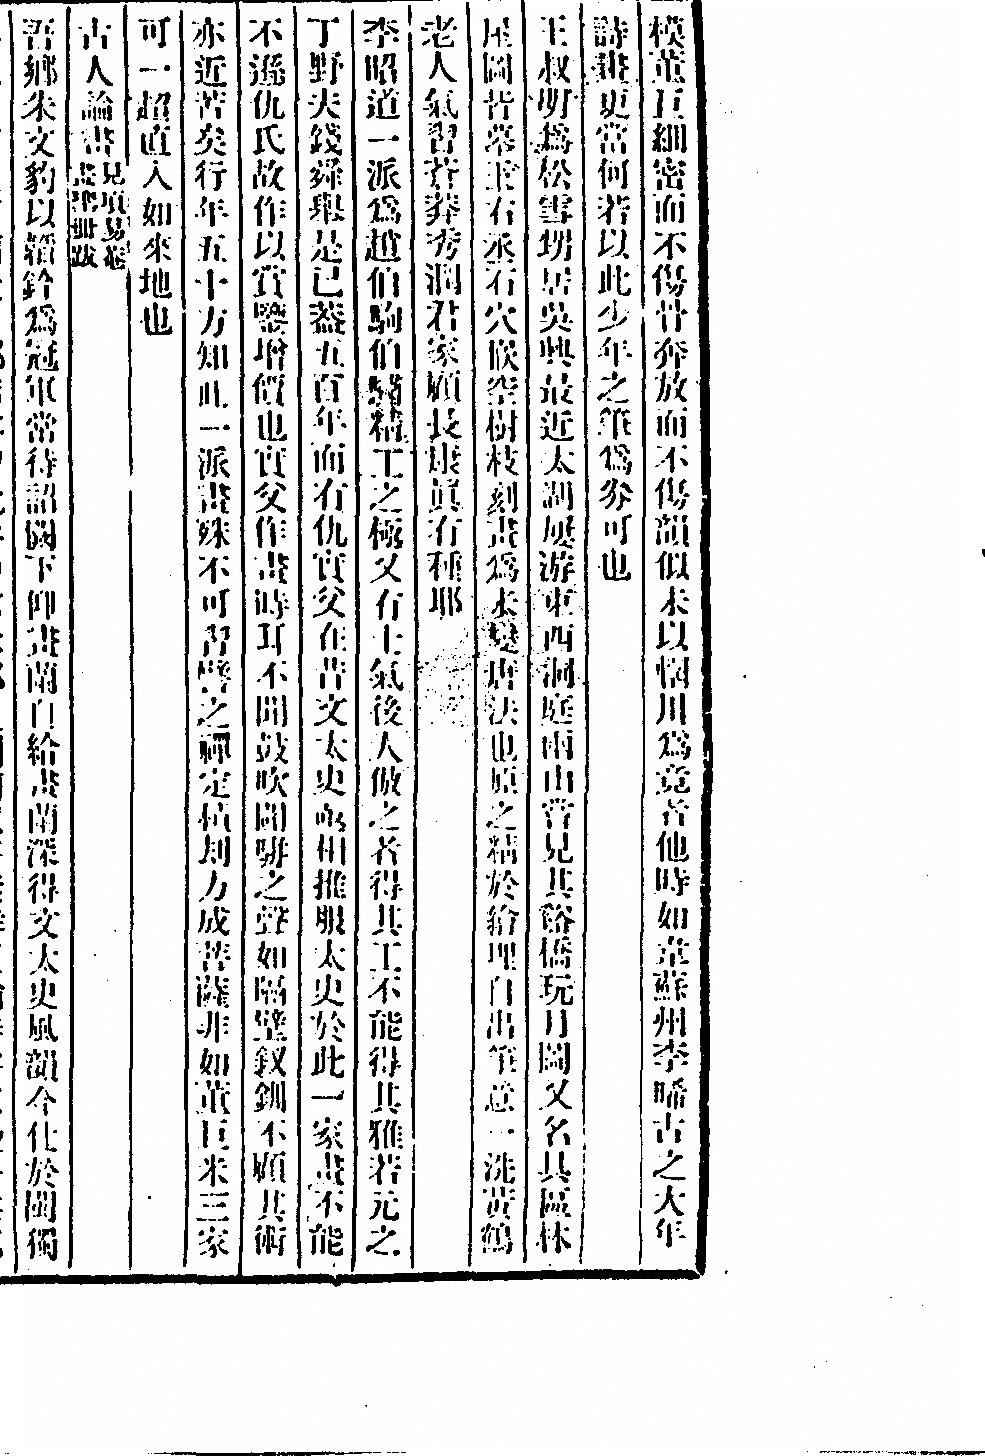 模董巨細密而不傷骨奔放而不傷韻似未以輞川爲竟者他時如韋蘇州李晞古之大年
詩畫更當何若以此少年之筆爲券可也
王叔明爲松雪甥居吳興最近太湖屢游東西洞庭兩山嘗見其谿橋玩月圖又名具區林
屋圖皆摹王右丞石穴嵌空樹枝刻畫爲未變唐法也原之精於繪理自出筆意一洗黃鶴
老人氣習蒼莽秀潤君家顧長康眞有種耶
李昭道一派爲趙伯駒伯驌精工之極又有士氣後人倣之者得其工不能得其雅若元之
丁野夫錢舜舉是已蓋五百年而有仇實父在昔文太史亟相推服太史於此一家畫不能
不遜仇氏故作以賞鑒增價也實父作畫時耳不聞鼓吹闐駢之聲如隔壁釵釧不顧其術
亦近苦矣行年五十方知此一派畫殊不可習譬之禪定積刦方成菩薩非如董巨米三家
可一超直入如來地也
古人論畫見項易菴畫譜冊跋
吾鄉朱文豹以韜鈐爲冠軍常待詔闕下仰畫蘭自給畫蘭深得文太史風韻今仕於閩獨